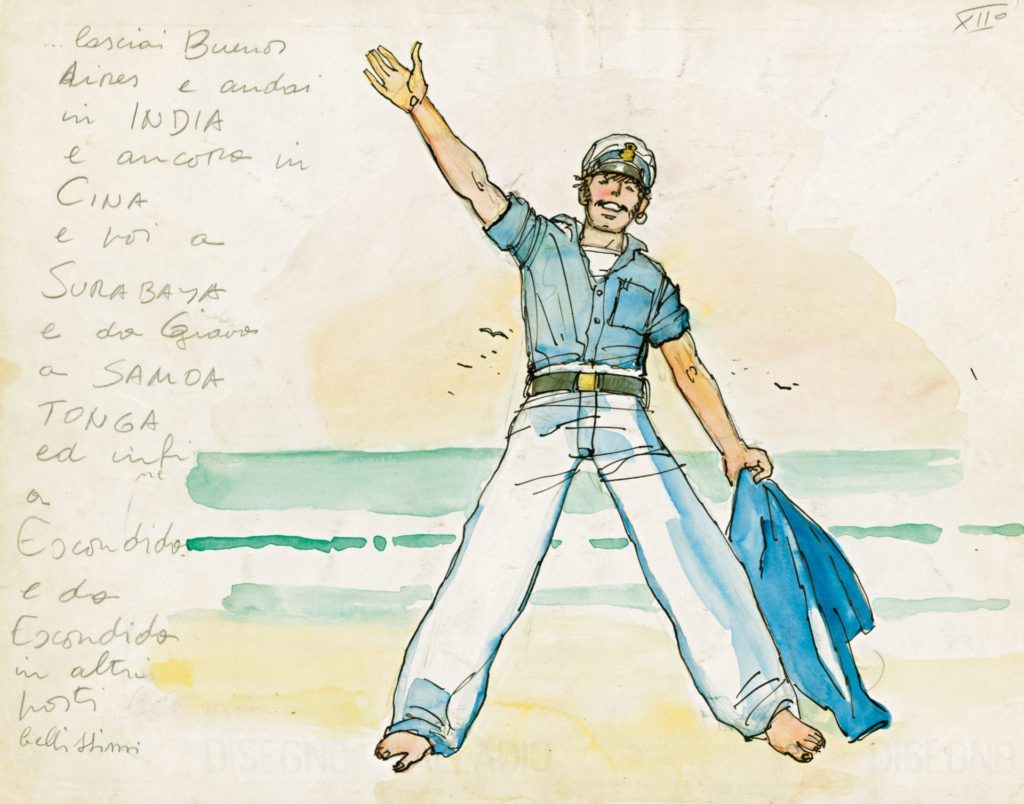 XIIo
... lasciai Buenos
Aires e andai
in INDIA
e ancora in
CINA
e poi a
SURABAYA
e da Giava
a SAMOA
TONGA
ed infi
ne
a
Escondida
e da
Escondida
in altri
posti
bellissimi
DISEGNO
DISEGNO